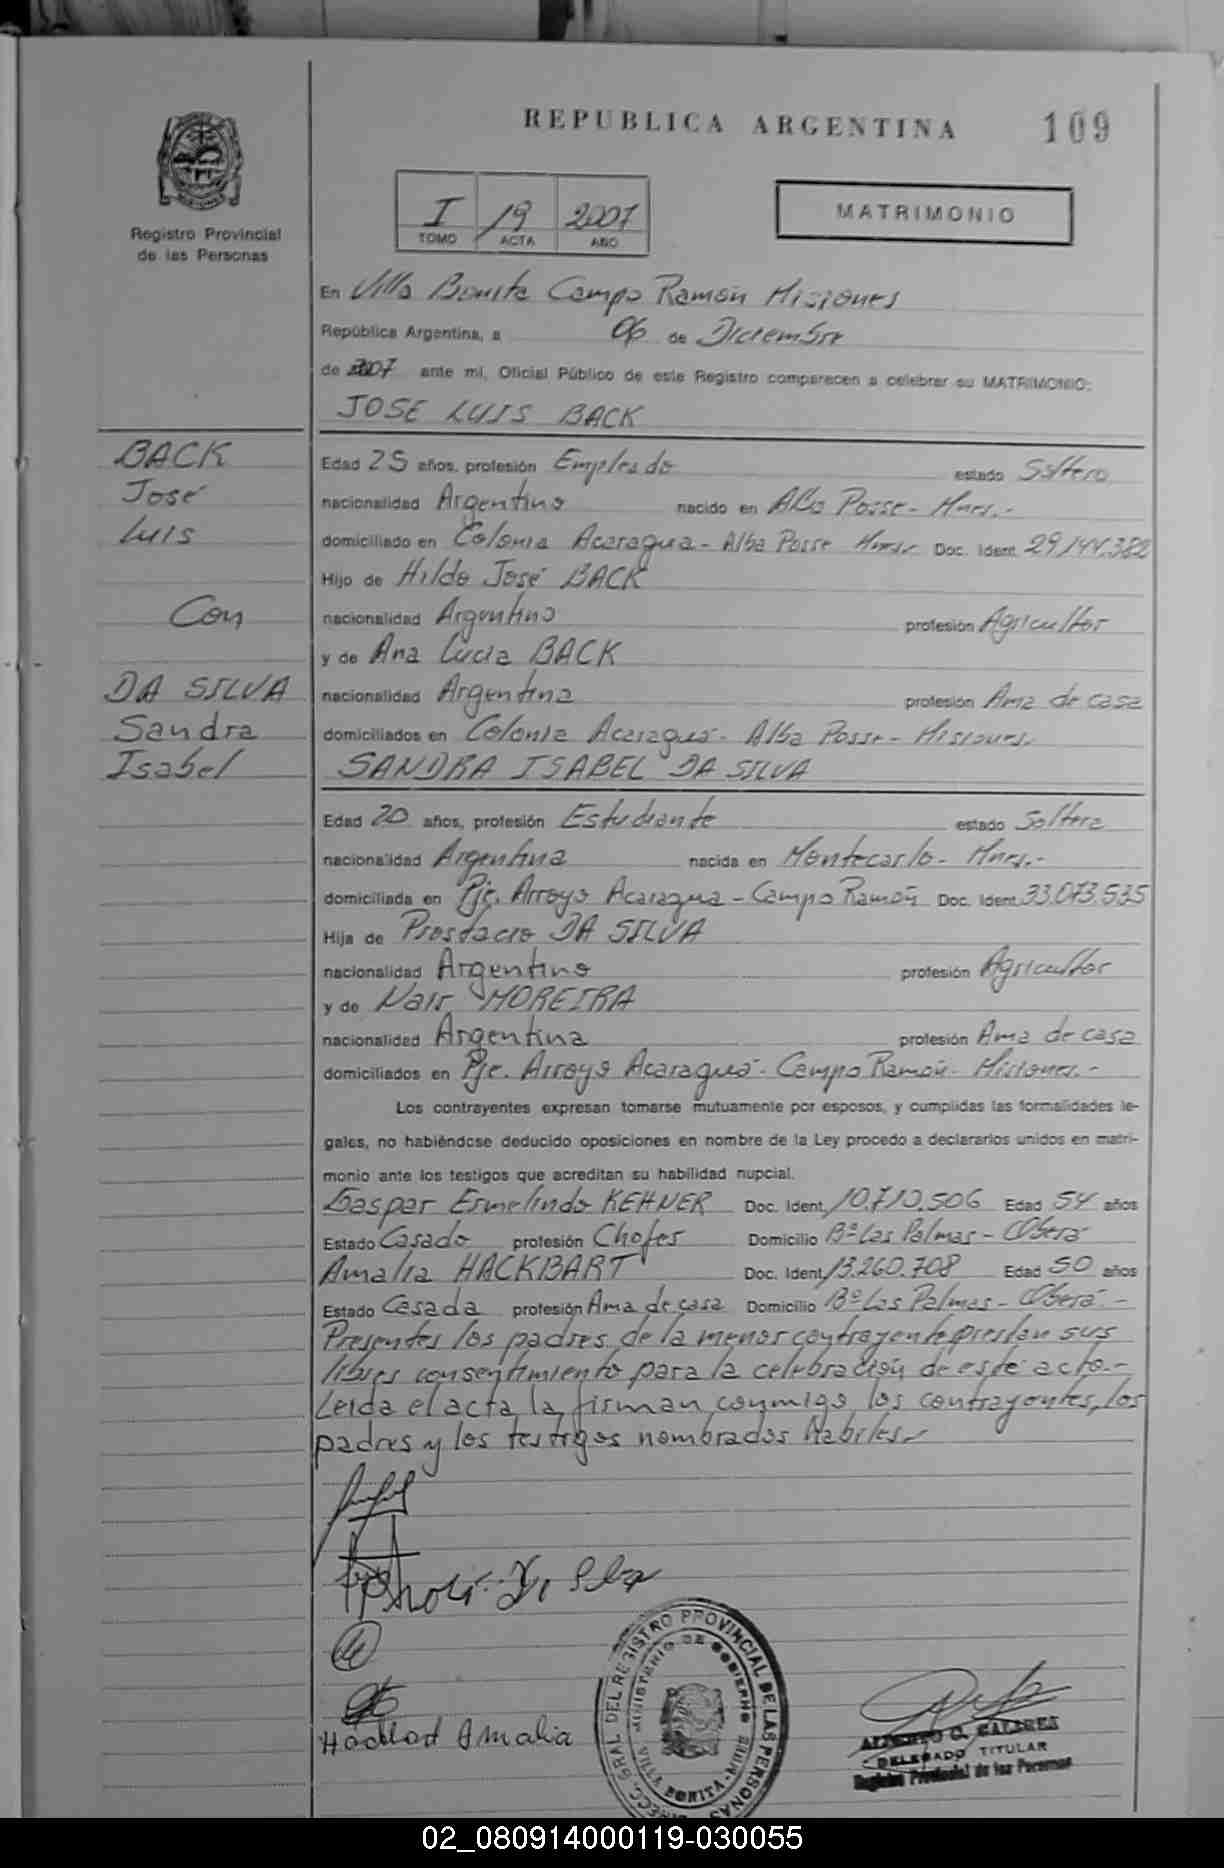 REPUBLICA ARGENTINA
109
Registro Provincial
de las Personas
I 19 2007
TOMO ACTA AÑO
MATRIMONIO
En Villa Bonita Campo Ramón Misiones
República Argentina, a 06 de Diciembre
de 2007 ante mi, Oficial Público de este Registro comparecen a celebrar su MATRIMONIO:
JOSE LUIS BACK
BACK
José
Luis
Con
DA SILVA
Sandra
Isabel
Edad 25 años, profesión Empleado estado Soltero
nacionalidad Argentino nacido en Alba Posse - Mnes.-
domiciliado en Colonia Acaragua - Alba Posse Mnes. Doc. Ident. 29.144.382
Hijo de Hildo José BACK
nacionalidad Argentino profesión Agricultor
y de Ana Lucia BACK
nacionalidad Argentina profesión Ama de casa
domiciliados en Colonia Acaraguá - Alba Posse - Misiones.
SANDRA ISABEL DA SILVA
Edad 20 años, profesión Estudiante estado Soltera
nacionalidad Argentina nacida en Montecarlo - Mnes.-
domiciliada en Pje. Arroyo Acaragua - Campo Ramón Doc. Ident. 33.073.535
Hija de DA SILVA
nacionalidad Argentino profesión Agricultor
y de Nair MOREIRA
nacionalidad Argentina profesión Ama de casa
domiciliados en Pje. Arroyo Acaraguá - Campo Ramón - Misiones.-
Los contrayentes expresan tomarse mutuamente por esposos, y cumplidas las formalidades le-
gales, no habiéndose deducido oposiciones en nombre de la Ley procedo a declararlos unidos en matri-
monio ante los testigos que acreditan su habilidad nupcial.
Gaspar Ermelindo KEHNER Doc. Ident. 10.710.506 Edad 54 años
Estado Casado profesión Chofer Domicilio Bº Las Palmas - Oberá
Amalia HACKBART Doc. Ident. 13.260.708 Edad 50 años
Estado Casada profesión Ama de casa Domicilio Bº Las Palmas - Oberá -
Presentes los padres de la menor contrayente prestan sus
libres consentimiento para la celebración de este acto.-
Leida el acta, la firman conmigo los contrayentes, los
padres y los testigos nombrados habiles.-
Amalia
DIRECC. GRAL. DEL REGISTRO PROVINCIAL DE LAS PERSONAS
MINISTERIO DE GOBIERNO
VILLA BONITA
DELEGADO TITULAR
Registro Provincial de las Personas
02_080914000119-030055